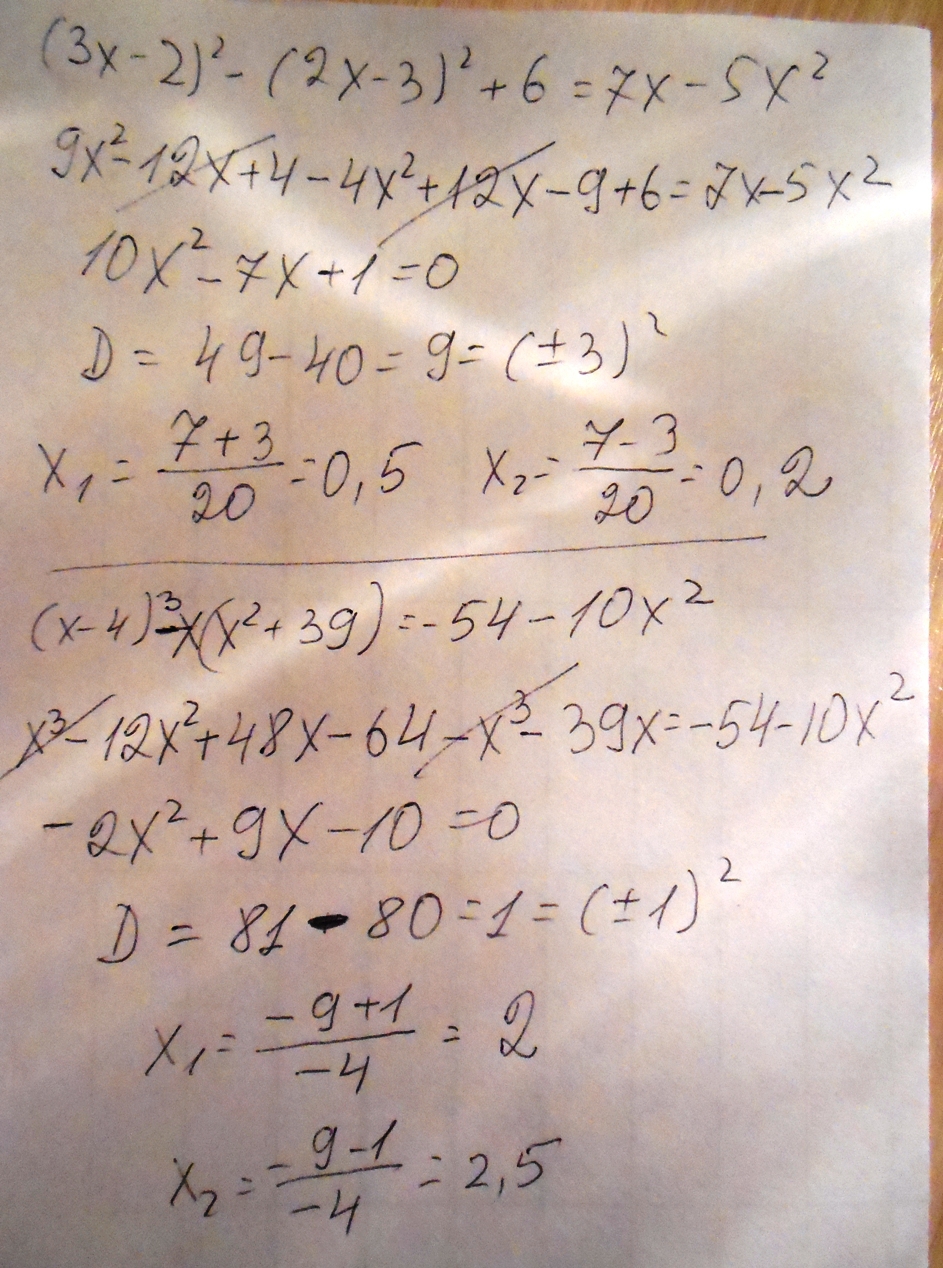 (3x-2)² - (2x-3)² + 6 = 7x - 5x²
9x² - 12x + 4 - 4x² + 12x - 9 + 6 = 7x - 5x²
10x² - 7x + 1 = 0
D = 49 - 40 = 9 = (±3)²
x₁ = (7+3)/20 = 0,5 x₂ = (7-3)/20 = 0,2
(x-4)³ - x(x² + 39) = -54 - 10x²
x³ - 12x² + 48x - 64 - x³ - 39x = -54 - 10x²
-2x² + 9x - 10 = 0
D = 81 - 80 = 1 = (±1)²
x₁ = (-9+1)/-4 = 2
x₂ = (-9-1)/-4 = 2,5